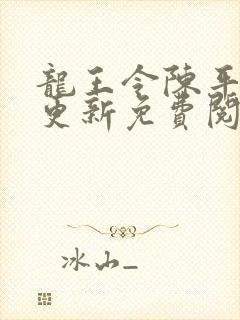 龍王令陳平
更新免費閱
冰山_